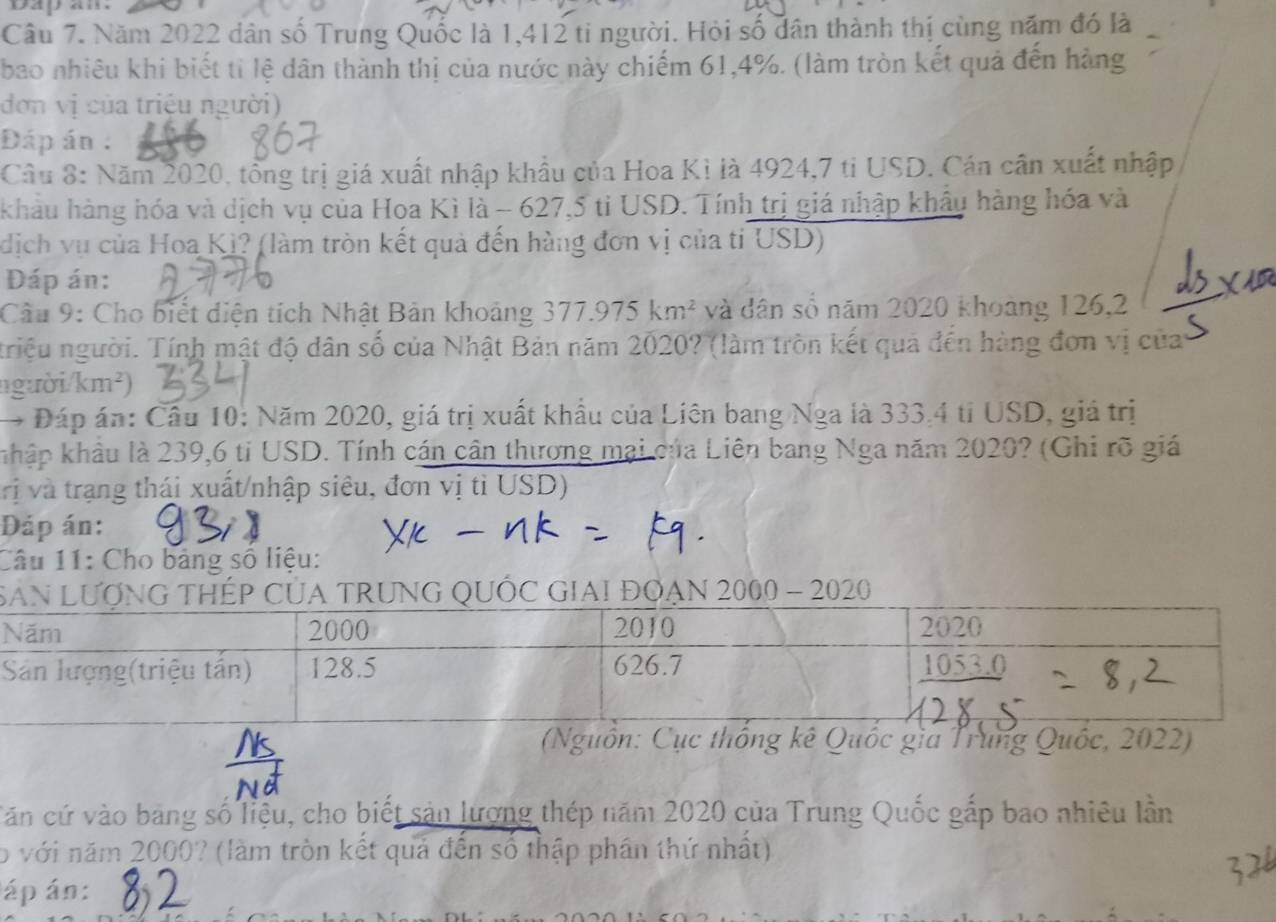 Đáp án:
Câu 7. Năm 2022 dân số Trung Quốc là 1,412 tỉ người. Hỏi số dân thành thị cùng năm đó là
bao nhiêu khi biết tỉ lệ dân thành thị của nước này chiếm 61,4%. (làm tròn kết quả đến hàng
đơn vị của triệu người)
Đáp án : 867
Câu 8: Năm 2020, tổng trị giá xuất nhập khẩu của Hoa Kì là 4924,7 tỉ USD. Cán cân xuất nhập
khẩu hàng hóa và dịch vụ của Hoa Kì là – 627,5 tỉ USD. Tính trị giá nhập khẩu hàng hóa và
dịch vụ của Hoa Kì? (làm tròn kết quả đến hàng đơn vị của tỉ USD)
Đáp án: 2776
Câu 9: Cho biết diện tích Nhật Bản khoảng 377.975 km² và dân số năm 2020 khoảng 126,2
ds x100
S
triệu người. Tính mật độ dân số của Nhật Bản năm 2020? (làm tròn kết quả đến hàng đơn vị của
người/km²) 334
→ Đáp án: Câu 10: Năm 2020, giá trị xuất khẩu của Liên bang Nga là 333,4 tỉ USD, giá trị
nhập khẩu là 239,6 tỉ USD. Tính cán cân thương mại của Liên bang Nga năm 2020? (Ghi rõ giá
trị và trạng thái xuất/nhập siêu, đơn vị tỉ USD)
Đáp án: 93,8 XK - nK = Kq.
Câu 11: Cho bảng số liệu:
SẢN LƯỢNG THÉP CỦA TRUNG QUỐC GIAI ĐOẠN 2000 – 2020
Năm 2000 2010 2020
Sản lượng(triệu tấn) 128.5 626.7 1053.0 = 8,2
128,5
(Nguồn: Cục thống kê Quốc gia Trung Quốc, 2022)
Ns
Nđ
Căn cứ vào bảng số liệu, cho biết sản lượng thép năm 2020 của Trung Quốc gấp bao nhiêu lần
so với năm 2000? (làm tròn kết quả đến số thập phân thứ nhất)
Đáp án: 8,2